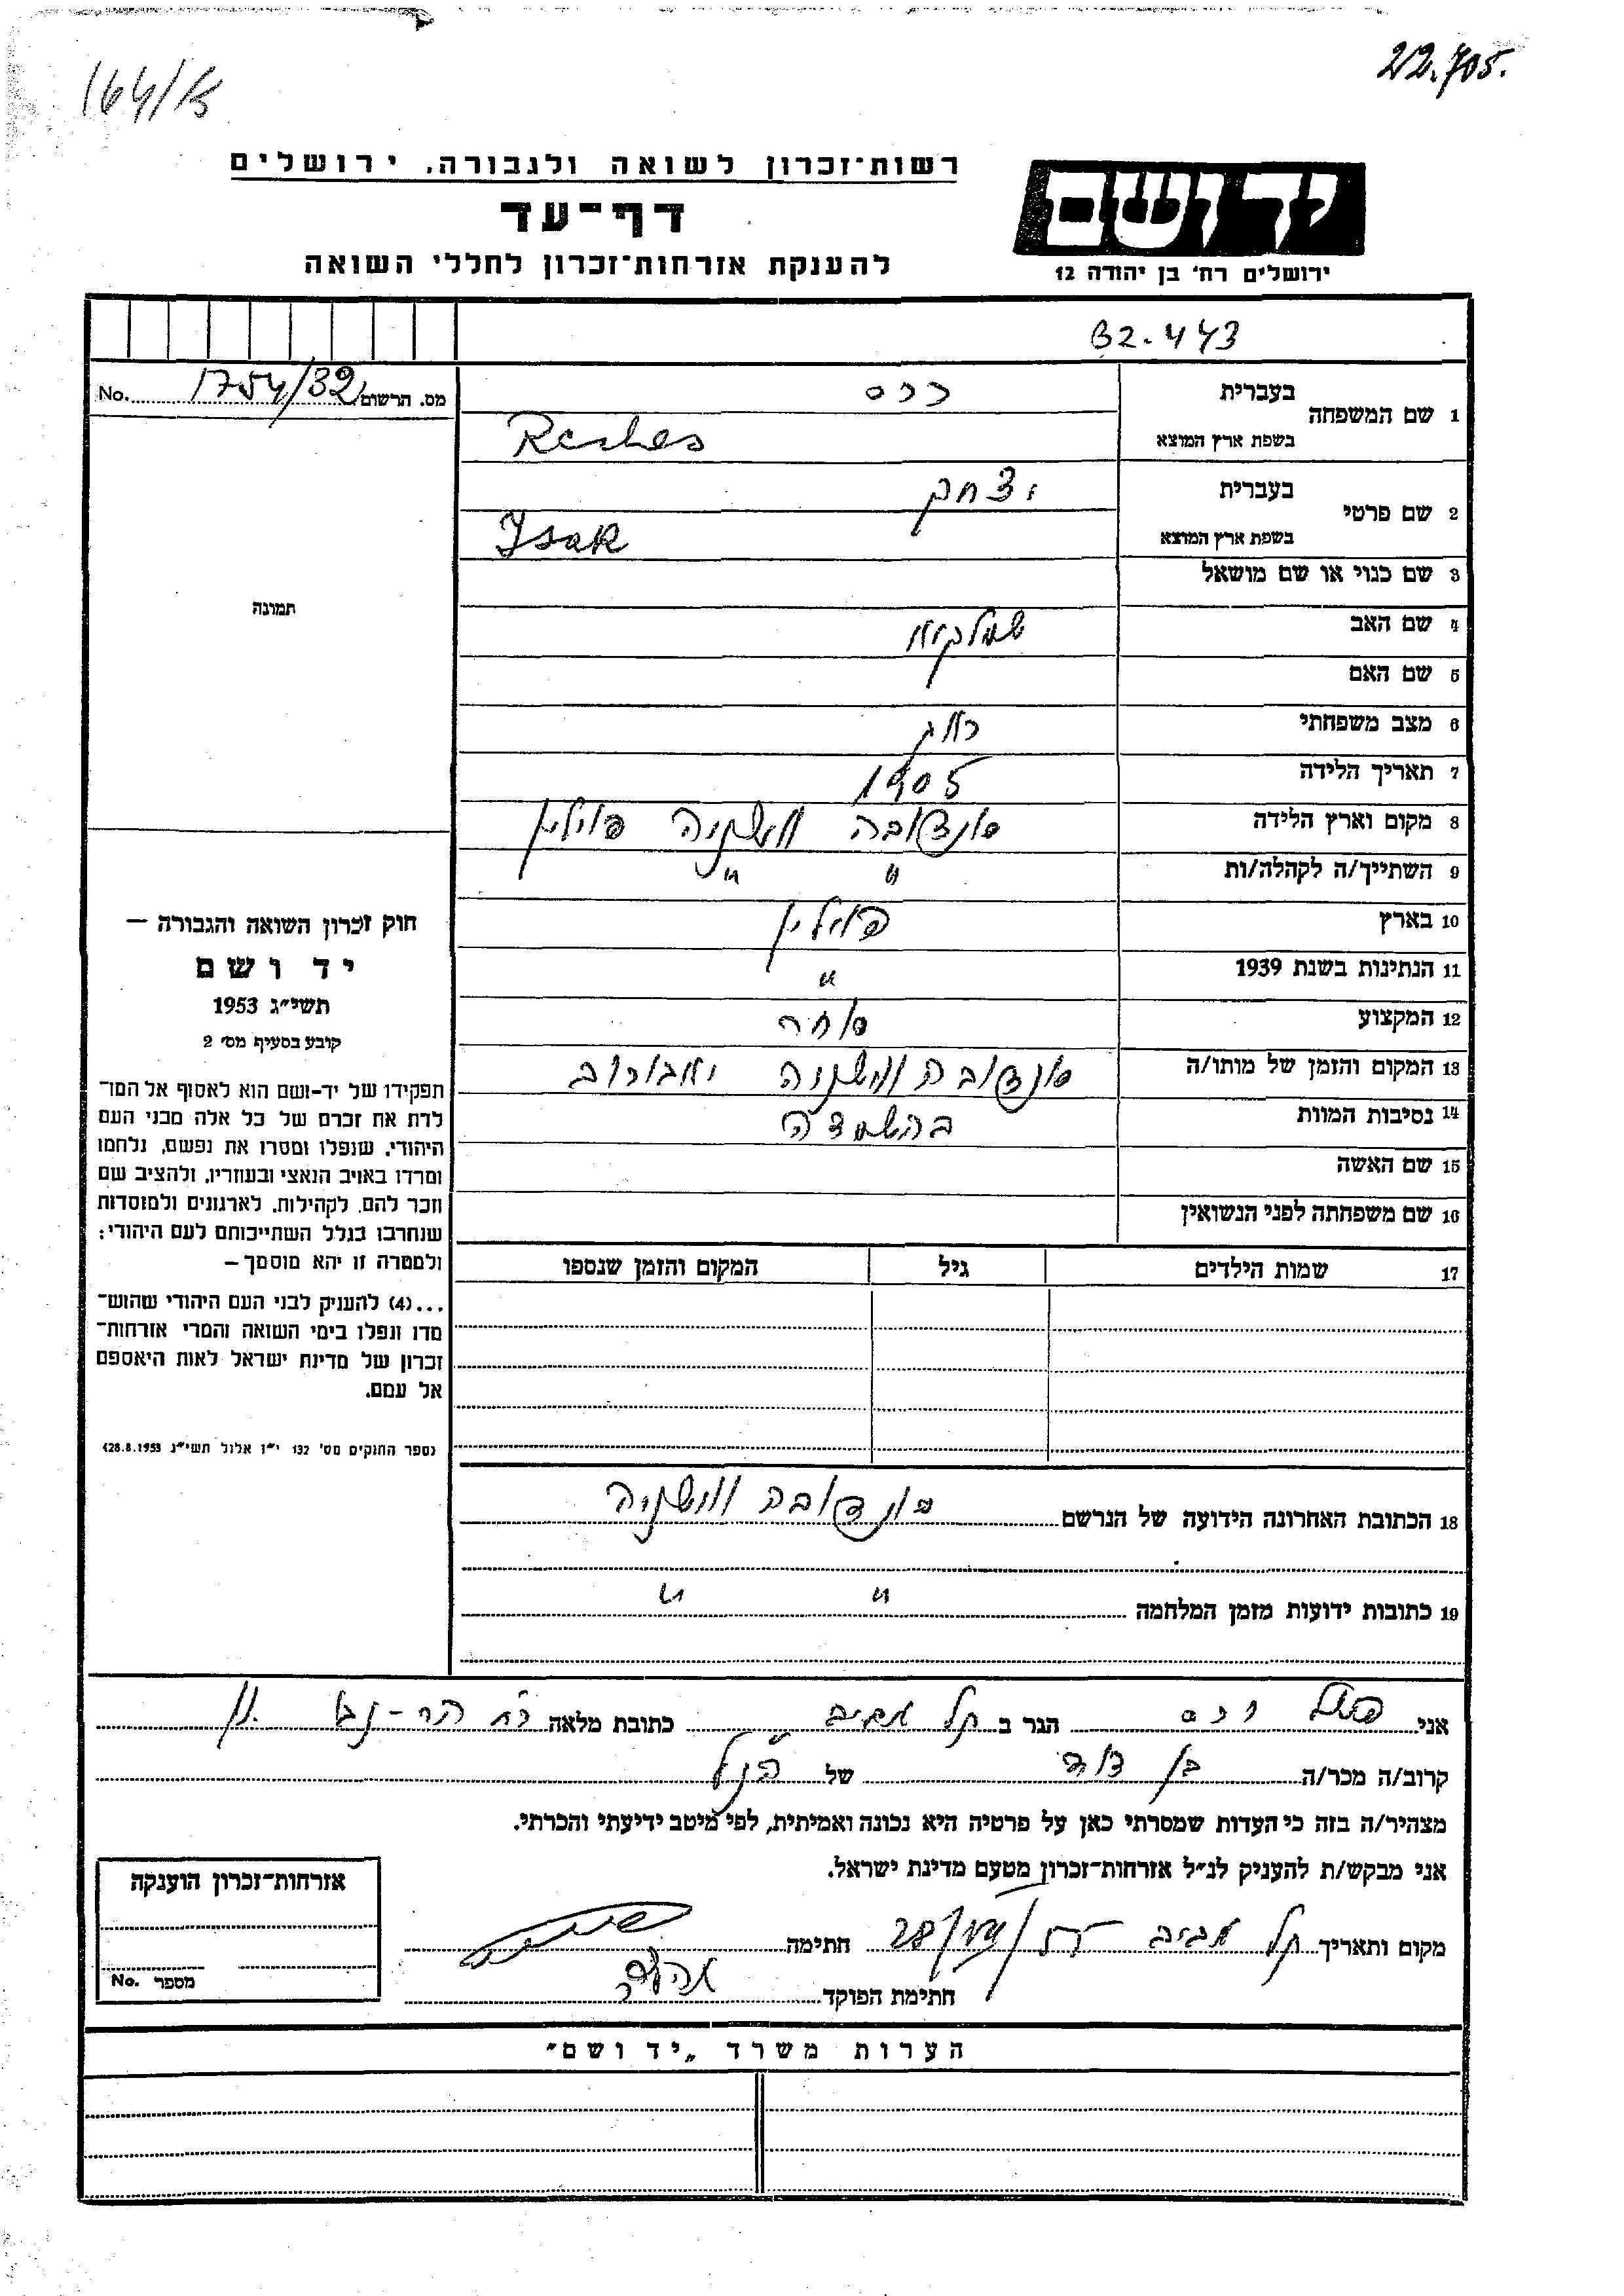 22.705.
164/B
רשות־זכרון לשואה ולגבורה, ירושלים
יד ושם
דף־עד
ירושלים רח' בן יהודה 12
להענקת אזרחות־זכרון לחללי השואה
32-443
מס. הרשום 1754/32 No.
1 שם המשפחה בעברית רכס
בשפת ארץ המוצא Reches
2 שם פרטי בעברית יצחק
בשפת ארץ המוצא Isak
3 שם כנוי או שם מושאל
תמונה
4 שם האב
5 שם האם
6 מצב משפחתי
7 תאריך הלידה 1905
8 מקום וארץ הלידה סונדובה ווישניה פולין
9 השתייך/ה לקהלה/ות " "
10 בארץ פולין
11 הנתינות בשנת 1939 "
12 המקצוע סוחר
13 המקום והזמן של מותו/ה סונדובה ווישניה
14 נסיבות המוות בהשמדה
15 שם האשה
16 שם משפחתה לפני הנשואין
17 שמות הילדים גיל המקום והזמן שנספו
חוק זכרון השואה והגבורה –
יד ושם
תשי"ג 1953
קובע בסעיף מס' 2
תפקידו של יד-ושם הוא לאסוף אל המו־
לדת את זכרם של כל אלה מבני העם
היהודי, שנפלו ומסרו את נפשם, נלחמו
ומרדו באויב הנאצי ובעוזריו, ולהציב שם
וזכר להם, לקהילות, לארגונים ולמוסדות
שנחרבו בגלל השתייכותם לעם היהודי;
ולמטרה זו יהא מוסמך –
...(4) להעניק לבני העם היהודי שהוש־
מדו ונפלו בימי השואה והמרי אזרחות־
זכרון של מדינת ישראל לאות היאספם
אל עמם.
(ספר החוקים מס' 132 י"ז אלול תשי"ג 28.8.1953)
18 הכתובת האחרונה הידועה של הנרשם סונדובה ווישניה
19 כתובות ידועות מזמן המלחמה " "
אני רכס הגר ב תל אביב כתובת מלאה רח הר-נבו 11
קרוב/ה מכר/ה בן דוד של הנ"ל
מצהיר/ה בזה כי העדות שמסרתי כאן על פרטיה היא נכונה ואמיתית, לפי מיטב ידיעתי והכרתי.
אני מבקש/ת להעניק לנ"ל אזרחות־זכרון מטעם מדינת ישראל.
מקום ותאריך תל אביב חתימה
חתימת הפוקד
אזרחות־זכרון הוענקה
מספר No.
הערות משרד "יד ושם"